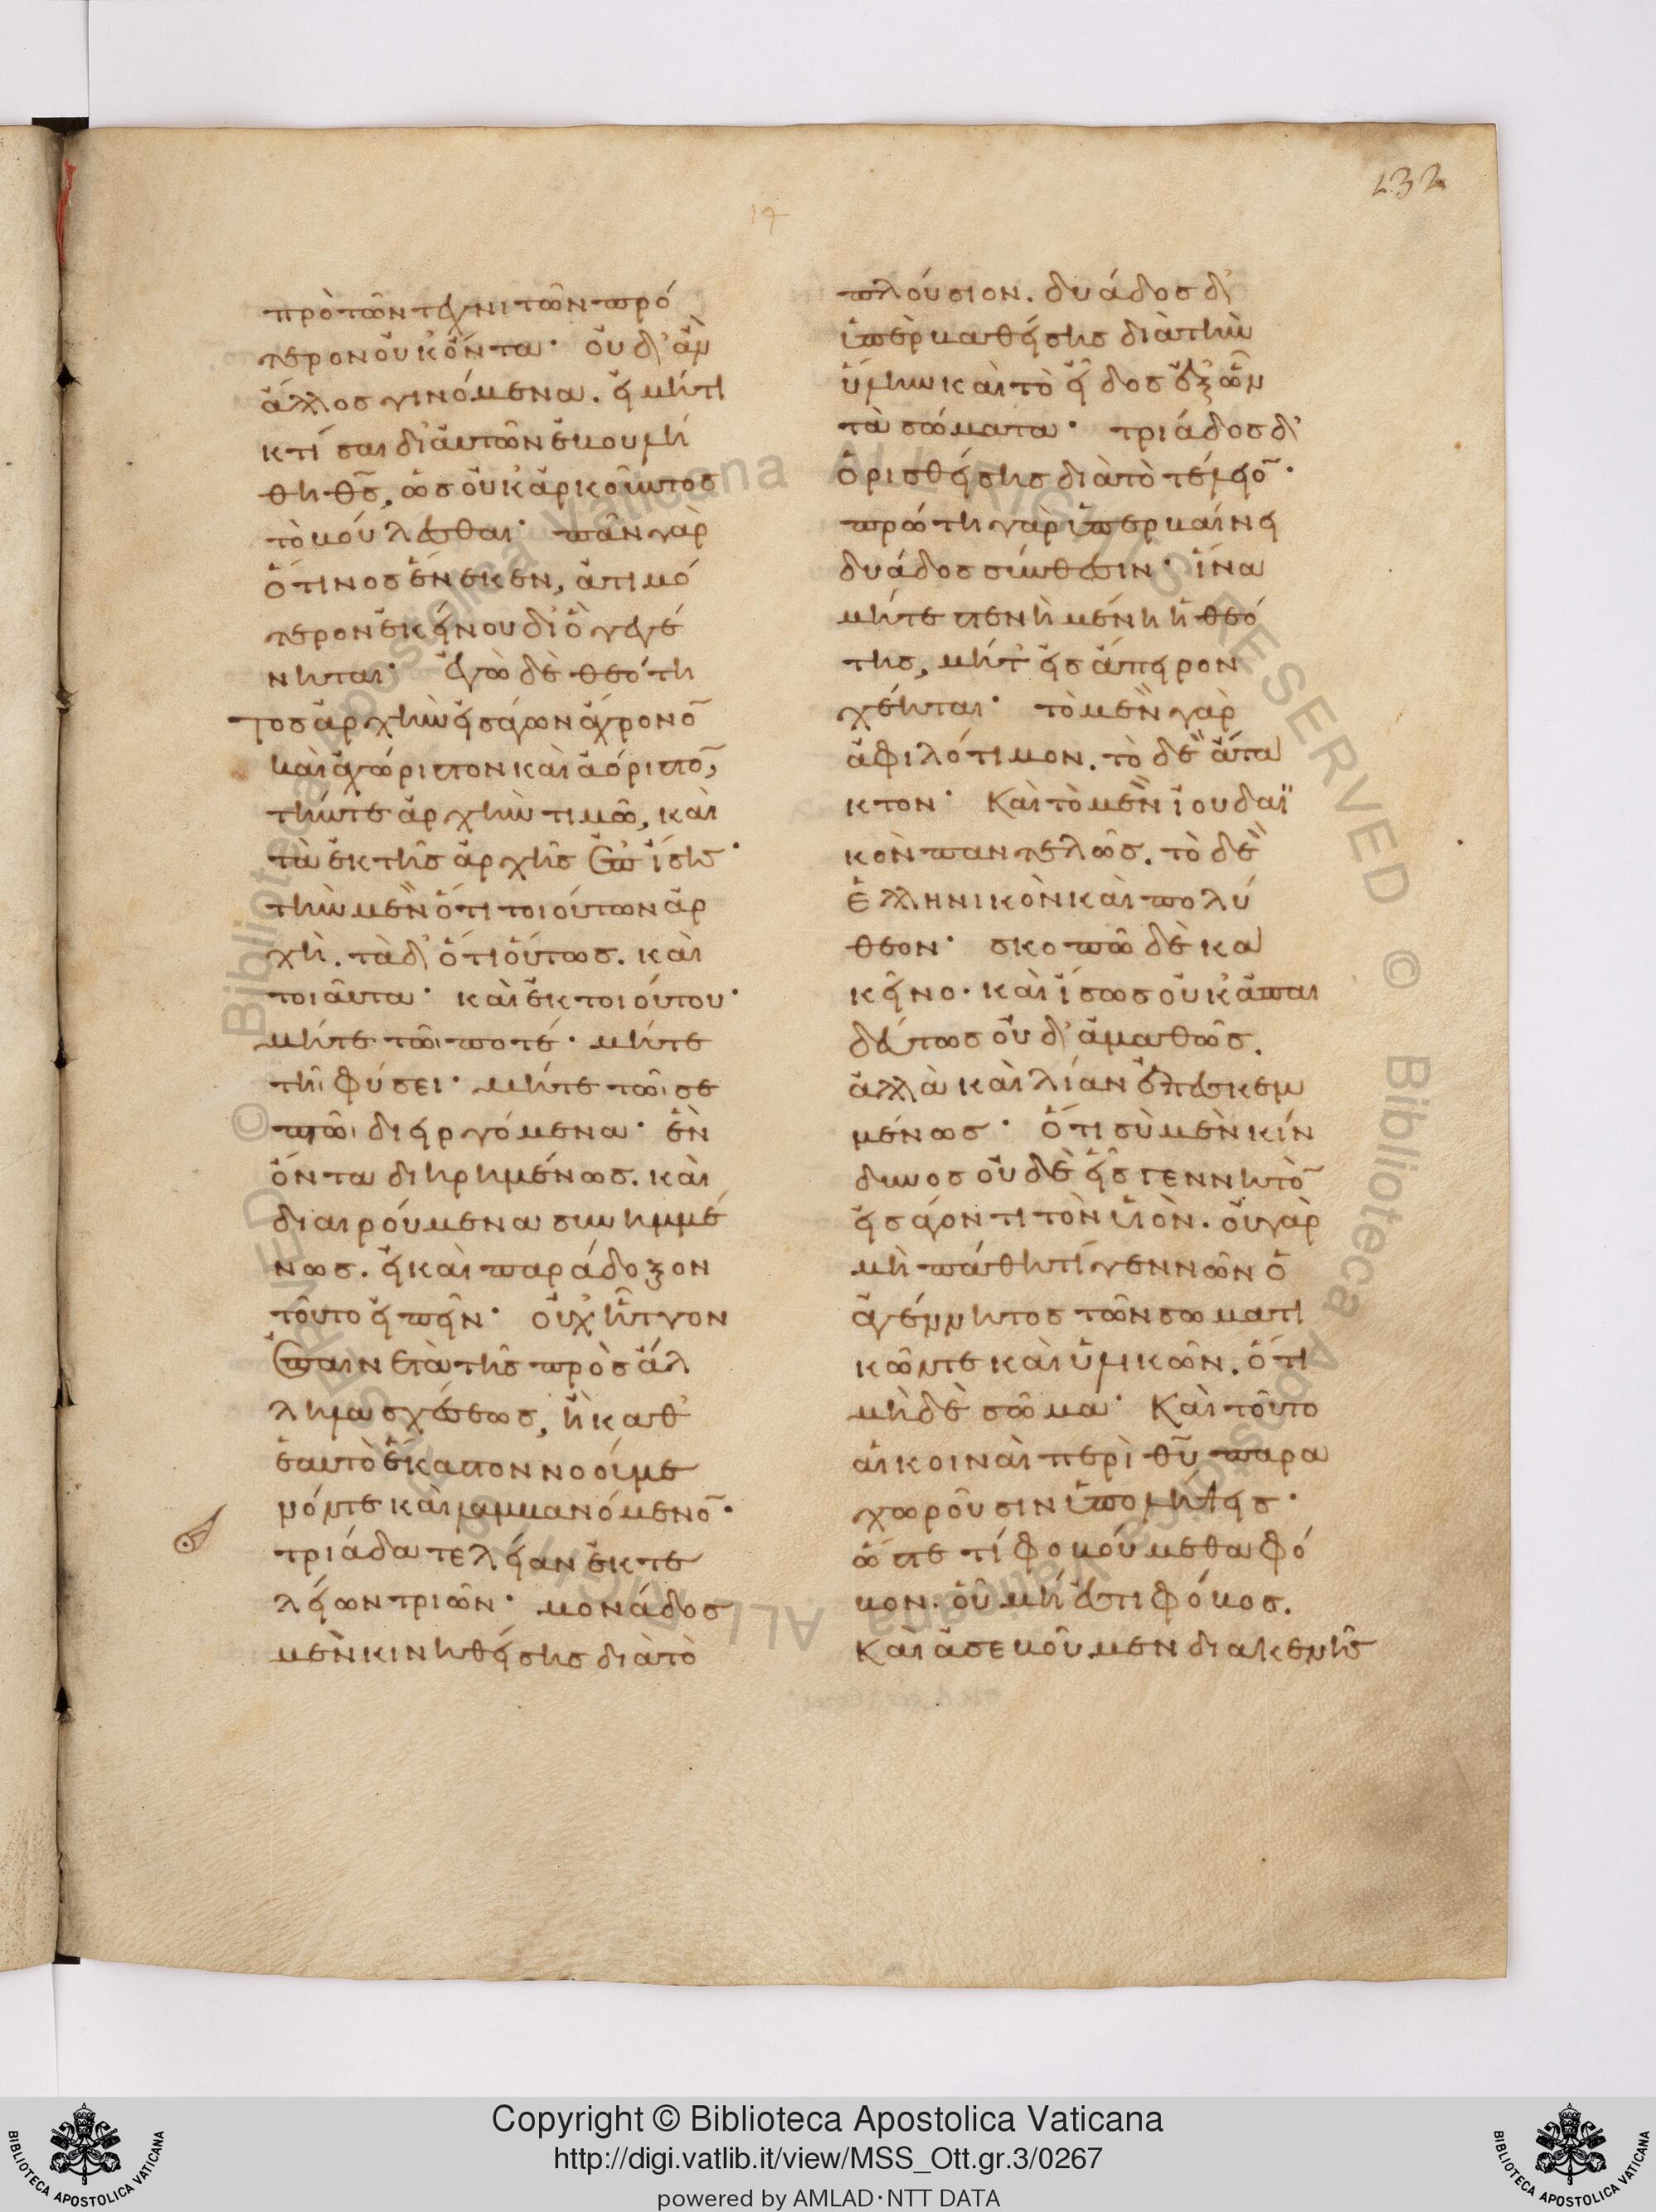 232
19
πρὸ τῶν τεχνιτῶν πρό
τερον οὐκ ὄντα· οὐδ' ἂν
ἄλλος γινόμενα. εἰ μή τι
κτίσαι δι' αὐτῶν ἐβουλή
θη θς, ὡς οὐκ ἀρκοῦντος
τὸ βούλεσθαι· πᾶν γὰρ
ὅ τινος ἕνεκεν, ἀτιμό
τερον ἐκείνου δι' ὃ γεγέ
νηται· ἐγὼ δὲ θεότη
τος ἀρχὴν εἰσάγων ἄχρονο
καὶ ἀχώριστον καὶ ἀόριστο,
τήν τε ἀρχὴν τιμῶ, καὶ
τὰ ἐκ τῆς ἀρχῆς ἐπίσης·
τὴν μὲν ὅτι τοιούτων ἀρ
χὴ. τὰ δ' ὅτι οὕτως. καὶ
τοιαῦτα· καὶ ἐκ τοιούτου·
μήτε τῶι ποτέ· μήτε
τῆι φύσει· μήτε τῶι σε
πτῶι διειργόμενα· ἓν
ὄντα διηρημένως. καὶ
διαιρούμενα συνημμέ
νως. εἰ καὶ παράδοξον
τοῦτο εἰπεῖν· οὐχ ἧττον
ἐπαινετὰ τῆς πρὸς ἄλ
ληλα σχέσεως, ἢ καθ'
ἑαυτὸ ἕκαστον νοούμε
νόν τε καὶ λαμβανόμενο·
τριάδα τελείαν ἐκ τε
λείων τριῶν· μονάδος
μὲν κινηθείσης διὰ τὸ
πλούσιον. δυάδος δ'
ὑπερβαθείσης διὰ τὴν
ὕλην καὶ τὸ εἶδος ἐξ ὧν
τὰ σώματα· τριάδος δ'
ὁρισθείσης διὰ τὸ τέλειο·
πρώτη γὰρ ὑπερβαίνει
δυάδος σύνθεσιν· ἵνα
μήτε στενὴ μένῃ ἡ θεό
της, μήτ' εἰς ἄπειρον
χέηται· τὸ μὲν γὰρ
ἀφιλότιμον. τὸ δὲ ἄτα
κτον· Καὶ τὸ μὲν ἰουδαϊ
κὸν παντελῶς. τὸ δὲ
ἑλληνικὸν καὶ πολύ
θεον· σκοπῶ δὲ κα
κεῖνο· καὶ ἴσως οὐκ ἀπαι
δεύτως οὐδ' ἀμαθῶς.
ἀλλὰ καὶ λίαν ἐπεσκεμ
μένως· ὅτι σὺ μὲν κίν
δυνος οὐδὲ εἷς γεννητὸ
εἰσάγοντι τὸν υἱὸν. οὐ γὰρ
μὴ πάθη τὶ γεννῶν ὁ
ἀγέννητος τῶν σωματι
κῶν τε καὶ ὑλικῶν. ὅτι
μὴ δὲ σῶμα· Καὶ τοῦτο
αἱ κοιναὶ περὶ θυ παρα
χωροῦσιν ὑπολήψεις·
ὥστε τί φοβούμεθα φό
βον. οὗ μή ἐστι φόβος.
Καὶ ἀσεβοῦμεν διακενῆς
Copyright © Biblioteca Apostolica Vaticana
http://digi.vatlib.it/view/MSS_Ott.gr.3/0267
powered by AMLAD·NTT DATA